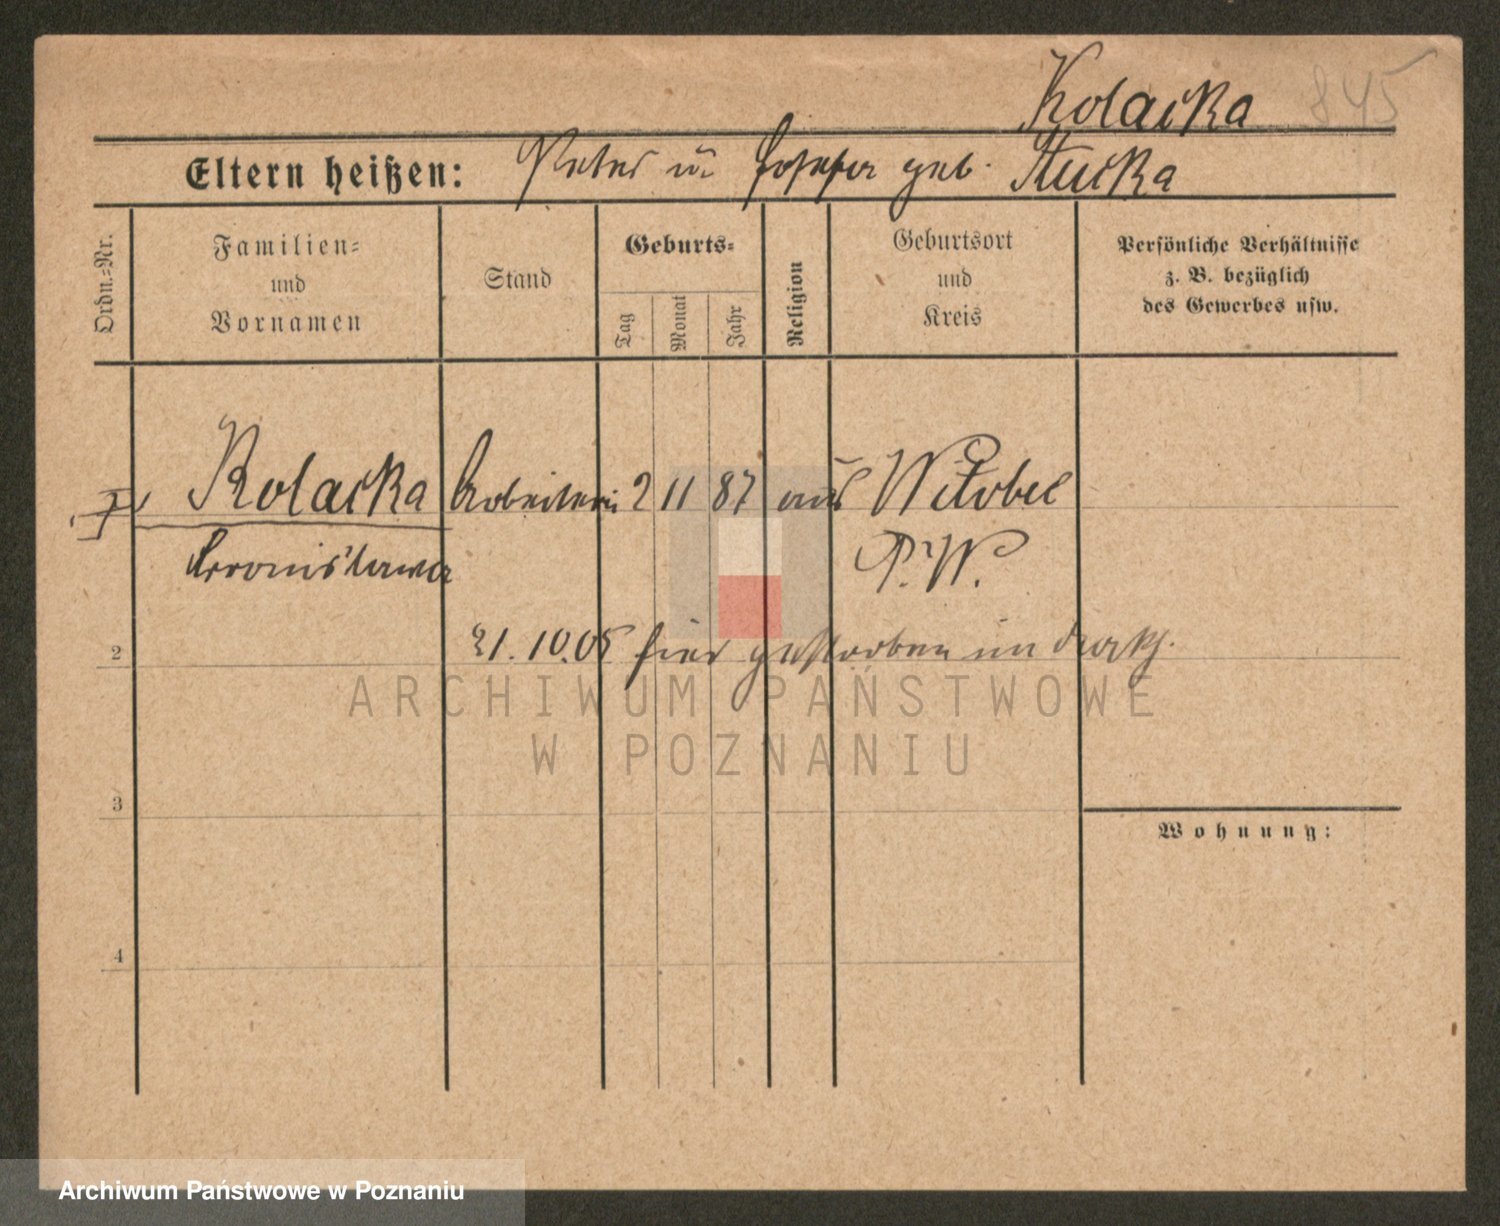 Kolacka 845
Eltern heißen: Peter u. Josefa geb. Kucka
Ordn.-Nr.
Familien-
und
Vornamen
Stand
Geburts-
Tag
Monat
Jahr
Religion
Geburtsort
und
Kreis
Persönliche Verhältnisse
z. B. bezüglich
des Gewerbes usw.
Kolacka Arbeiterin 2 11 87 aus Witobel
Bronislawa P. W.
21.10.05 hier gestorben im
2
ARCHIWUM PAŃSTWOWE
W POZNANIU
3
Wohnung:
4
Archiwum Państwowe w Poznaniu